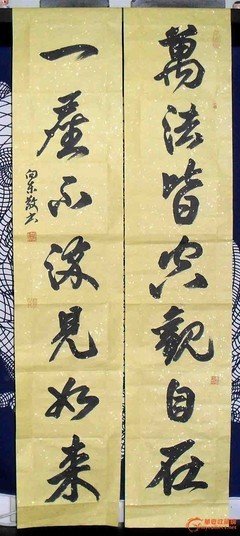 萬法皆空觀自在
一塵不染見如來
向東敬書